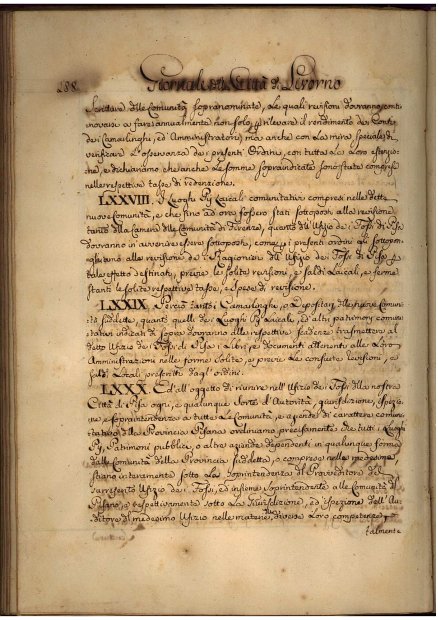 288
Giornale della Città di Livorno
Scritture delle Comunità soprannominate, le quali revisioni dovranno conti
novarsi a fare annualmente non solo p rilevare il rendimento dei Conti
dei Camarlinghi, ed Amministratori, ma anche con la mira speciale di
verificare l'osservanza dei presenti Ordini, con tutta la loro estensio
ne, e dichiariamo che anche le somme sopraindicate sono state comprese
nelle respettive tasse di redenzione.
LXXVIII. I Luoghi Pij Laicali comunitativi compresi nelle dette
nuove comunità, e che fino ad ora fossero stati sottoposti alla revisione
tanto della Camera delle Comunità di Firenze, quanto dell'Ufizio dei Fossi di Pisa
dovranno in avvenire essere sottoposti, come p i presenti ordini gli sottopon
ghiamo alla revisione dei Ragionieri dell'Ufizio dei Fossi di Pisa a
tale effetto destinati, previe le solite revisioni, e saldi Locali, e ferme
stanti le solite respettive tasse, e spese di revisione.
LXXIX. Perciò tanto i Camarlinghi, o Depositarj delle nuove Comuni
tà suddette, quanto quelli dei Luoghi Pij Laicali, ed altri patrimonj comuni
tativi indicati di sopra dovranno alle respettive scadenze trasmettere al
detto Ufizio dei Fossi di Pisa i Libri, e documenti attenenti alle loro
Amministrazioni nelle forme solite, e previe le consuete revisioni, e
saldi Locali prescritti dagl'ordini.
LXXX. Ed all'oggetto di riunire nell'Ufizio dei Fossi della nostra
Città di Pisa ogni, e qualunque sorte d'Autorità, giurisdizione, ispezio
ne, e soprintendenza a tutte le Comunità, e aziende di carattere comuni
tativo della Provincia Pisana ordiniamo precisamente che tutti i Luoghi
Pij, Patrimonj pubblici, o altre aziende dependenti in qualunque forma
dalle Comunità della Provincia suddetta, o comprese nella medesima,
stiano interamente sotto la Soprintendenza del Provveditore del
surriferito Ufizio dei Fossi, ed insieme Soprintendente alle Comunità del
Pisano, e respettivamente sotto la Giurisdizione, ed ispezione dell'Au
ditore del medesimo Ufizio nelle materie di loro competenza,
talmente